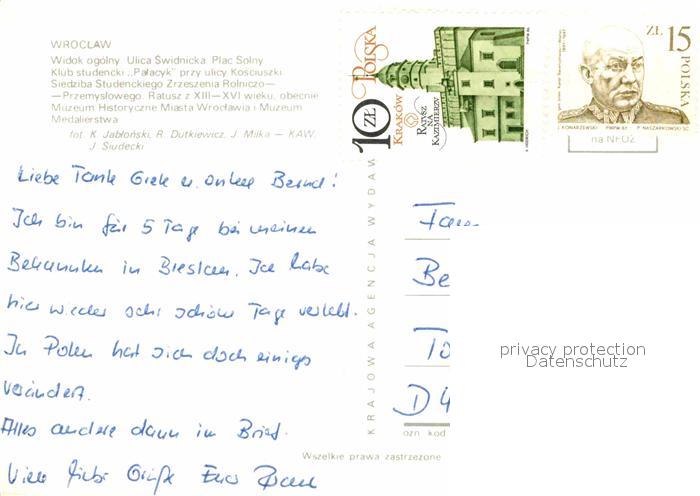 WROCŁAW
Widok ogólny. Ulica Świdnicka. Plac Solny
Klub studencki „Pałacyk” przy ulicy Kościuszki
Siedziba Studenckiego Zrzeszenia Rolniczo—
—Przemysłowego. Ratusz z XIII—XVI wieku, obecnie
Muzeum Historyczne Miasta Wrocławia i Muzeum
Medalierstwa
fot. K. Jabłoński, R. Dutkiewicz, J. Milka — KAW,
J. Siudecki
Liebe Tante u. Onkel Bernd!
Ich bin für 5 Tage bei meinen
Bekannten in Breslau. Ich habe
hier wieder sehr schöne Tage verlebt.
In Polen hat sich doch einiges
verändert.
Alles andere dann im Brief.
Viele liebe Grüße Euer
KRAJOWA AGENCJA WYDAW
Wszelkie prawa zastrzeżone
10 ZŁ
POLSKA
KRAKÓW
RATUSZ
NA
KAZIMIERZU
ZŁ 15
POLSKA
J. KONARZEWSKI PWPW-87 P. NASZARKOWSKI SC.
na NFOZ
Fam
Be
To
D 4
ozn kod
privacy protection
Datenschutz